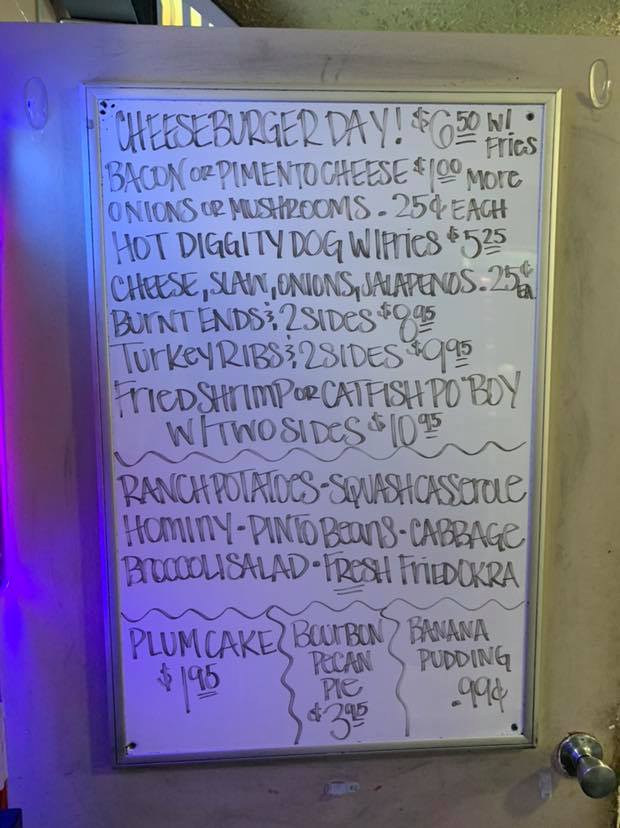 CHEESEBURGER DAY! $6.50 W/ Fries
BACON OR PIMENTO CHEESE $1.00 More
ONIONS OR MUSHROOMS . 25¢ EACH
HOT DIGGITY DOG W/Fries $5.25
CHEESE, SLAW, ONIONS, JALAPENOS . 25¢ EA
BURNT ENDS & 2 SIDES $8.95
Turkey RIBS & 2 SIDES $9.95
Fried SHrimP OR CATFISH PO'BOY
W/ TWO SIDES $10.95
RANCH POTATOES - SQUASH CASSEROLE
HOMINY - PINTO BEANS - CABBAGE
BROCCOLI SALAD - FRESH FRIED OKRA
PLUM CAKE
$1.95
BOURBON
PECAN
PIE
$3.95
BANANA
PUDDING
.99¢